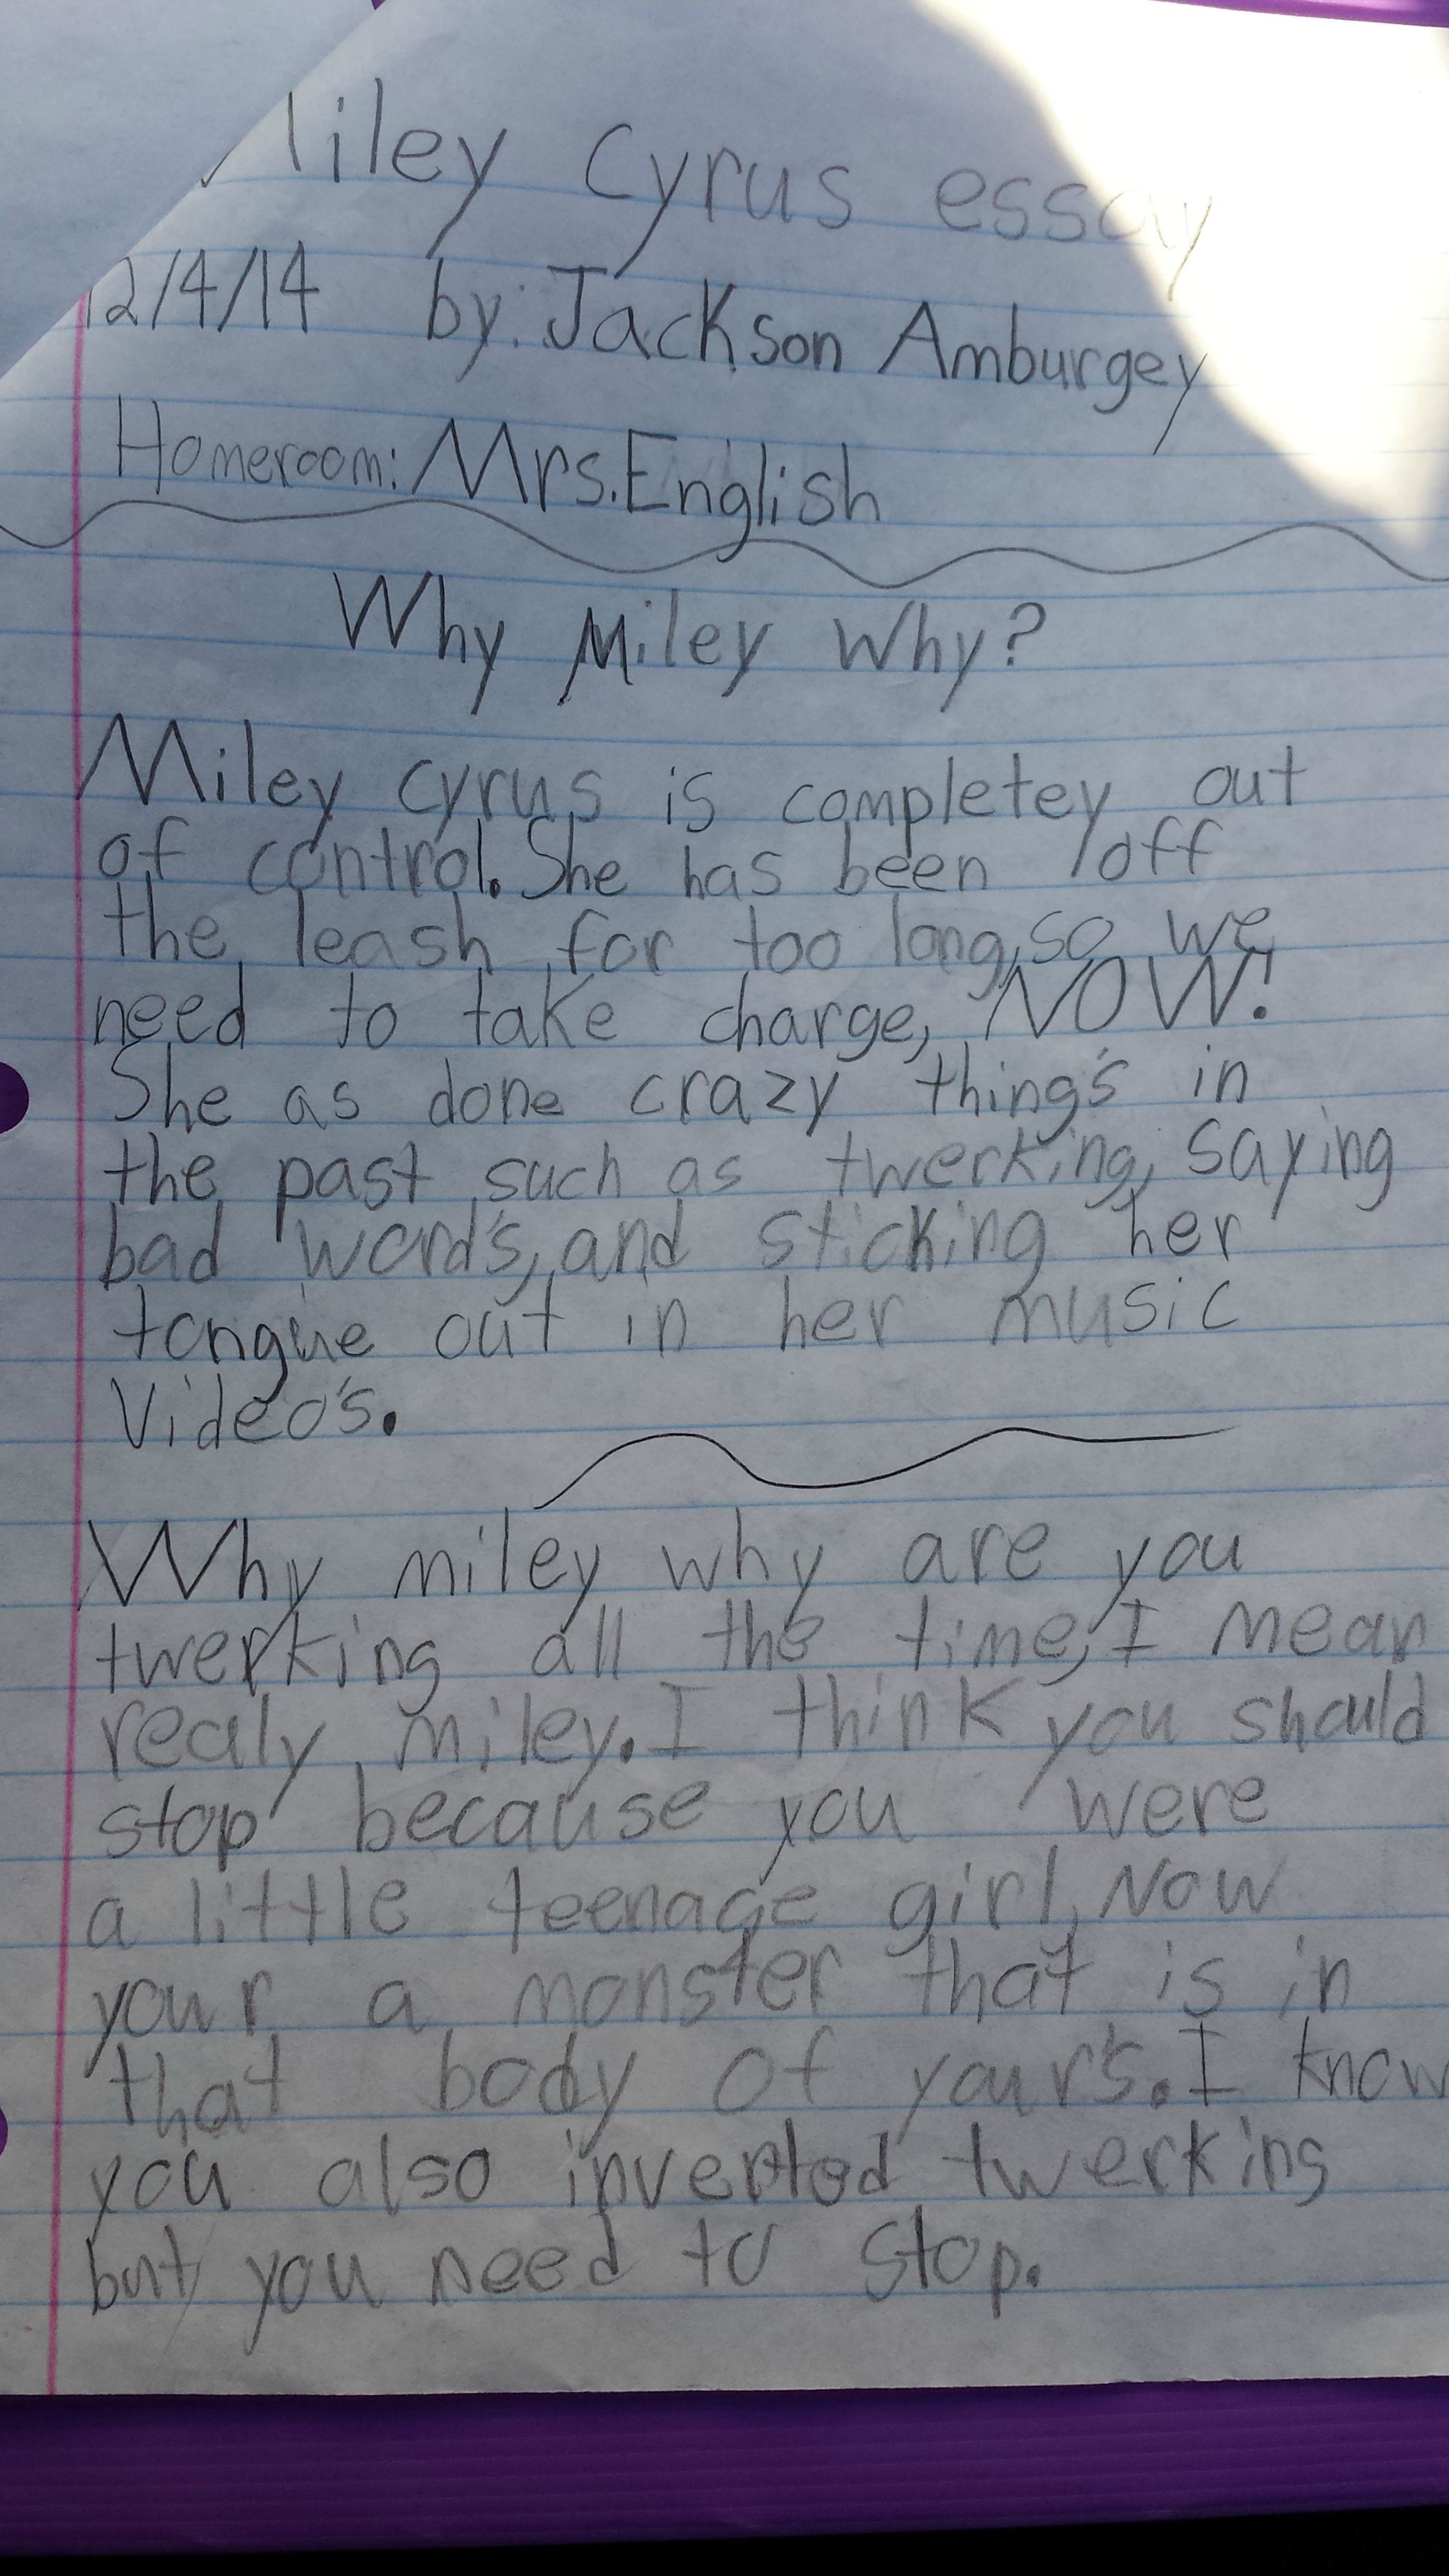 Miley Cyrus essay
12/4/14 by: Jackson Amburgey
Homeroom: Mrs. English
Why Miley Why?
Miley cyrus is completey out
of control. She has been off
the leash for too long, so we
need to take charge, NOW!
She as done crazy thing's in
the past such as twerking, saying
bad word's, and sticking her
tongue out in her music
Video's.
Why miley why are you
twerking all the time, I mean
realy miley. I think you should
stop because you were
a little teenage girl, Now
your a monster that is in
that body of your's. I know
you also invented twerking
but you need to stop.